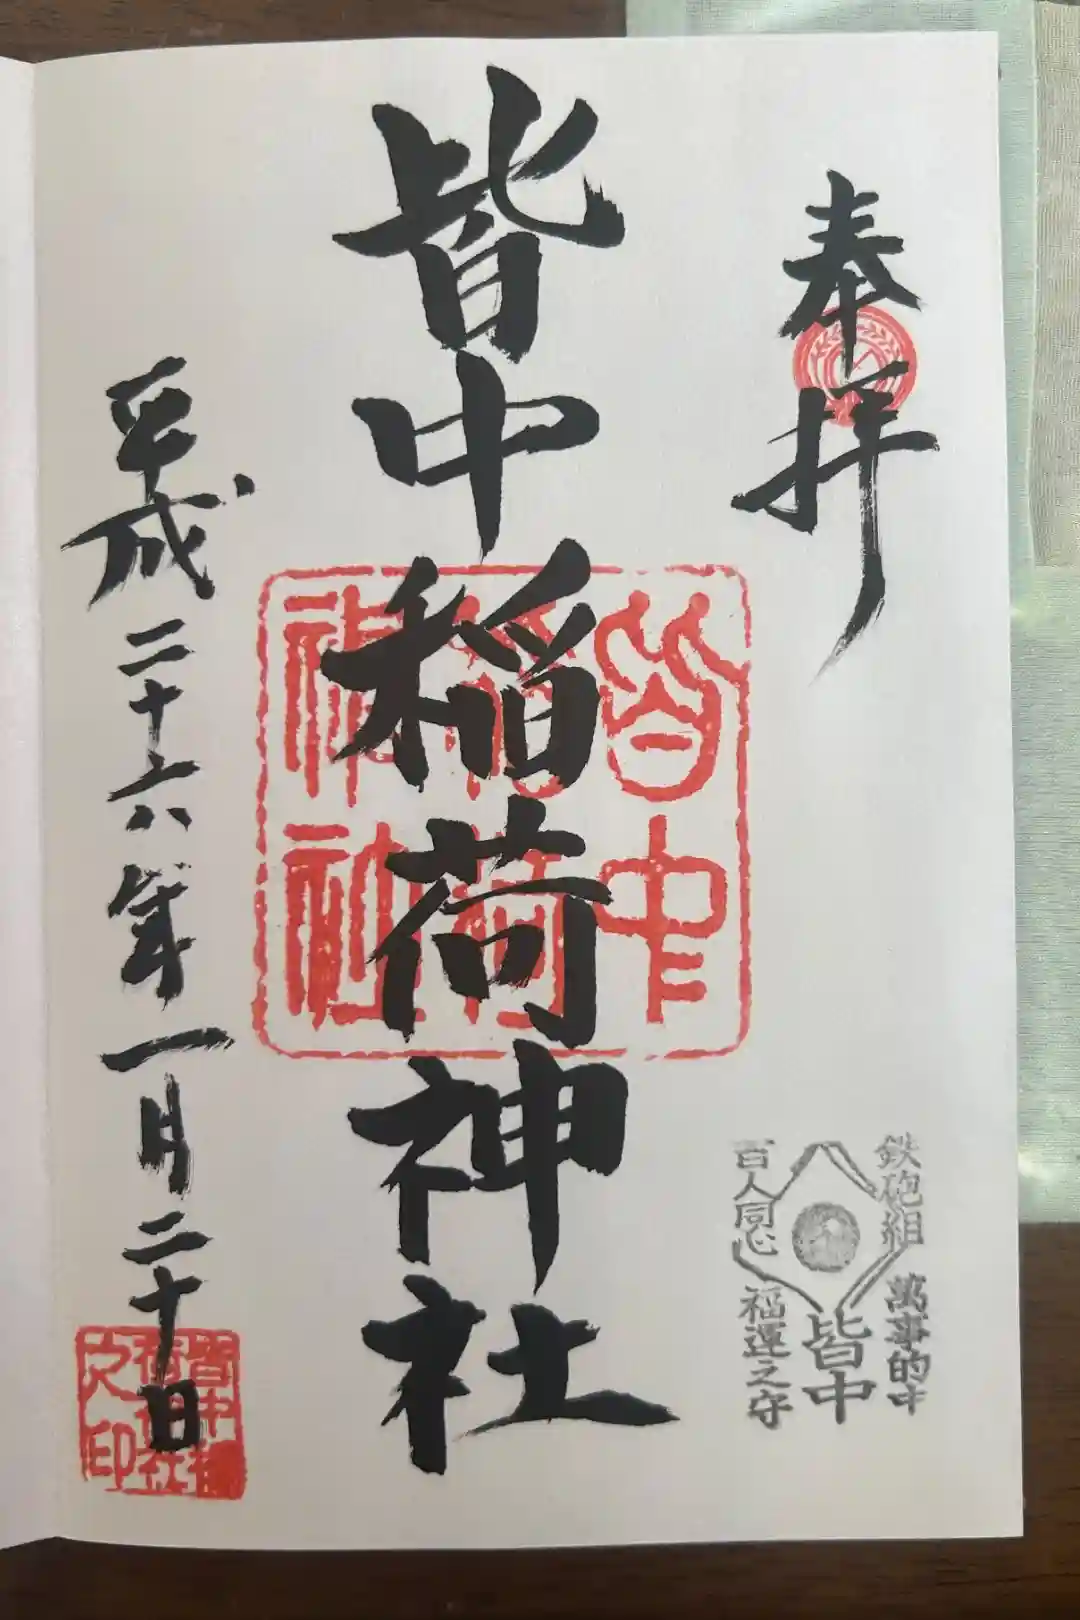 奉拝
鉄砲組
百人同心
萬事的中
皆中
福運之守
皆中稲荷神社
皆中
稲荷
神社
平成二十六年一月二十日
皆中稲
荷神社
之印